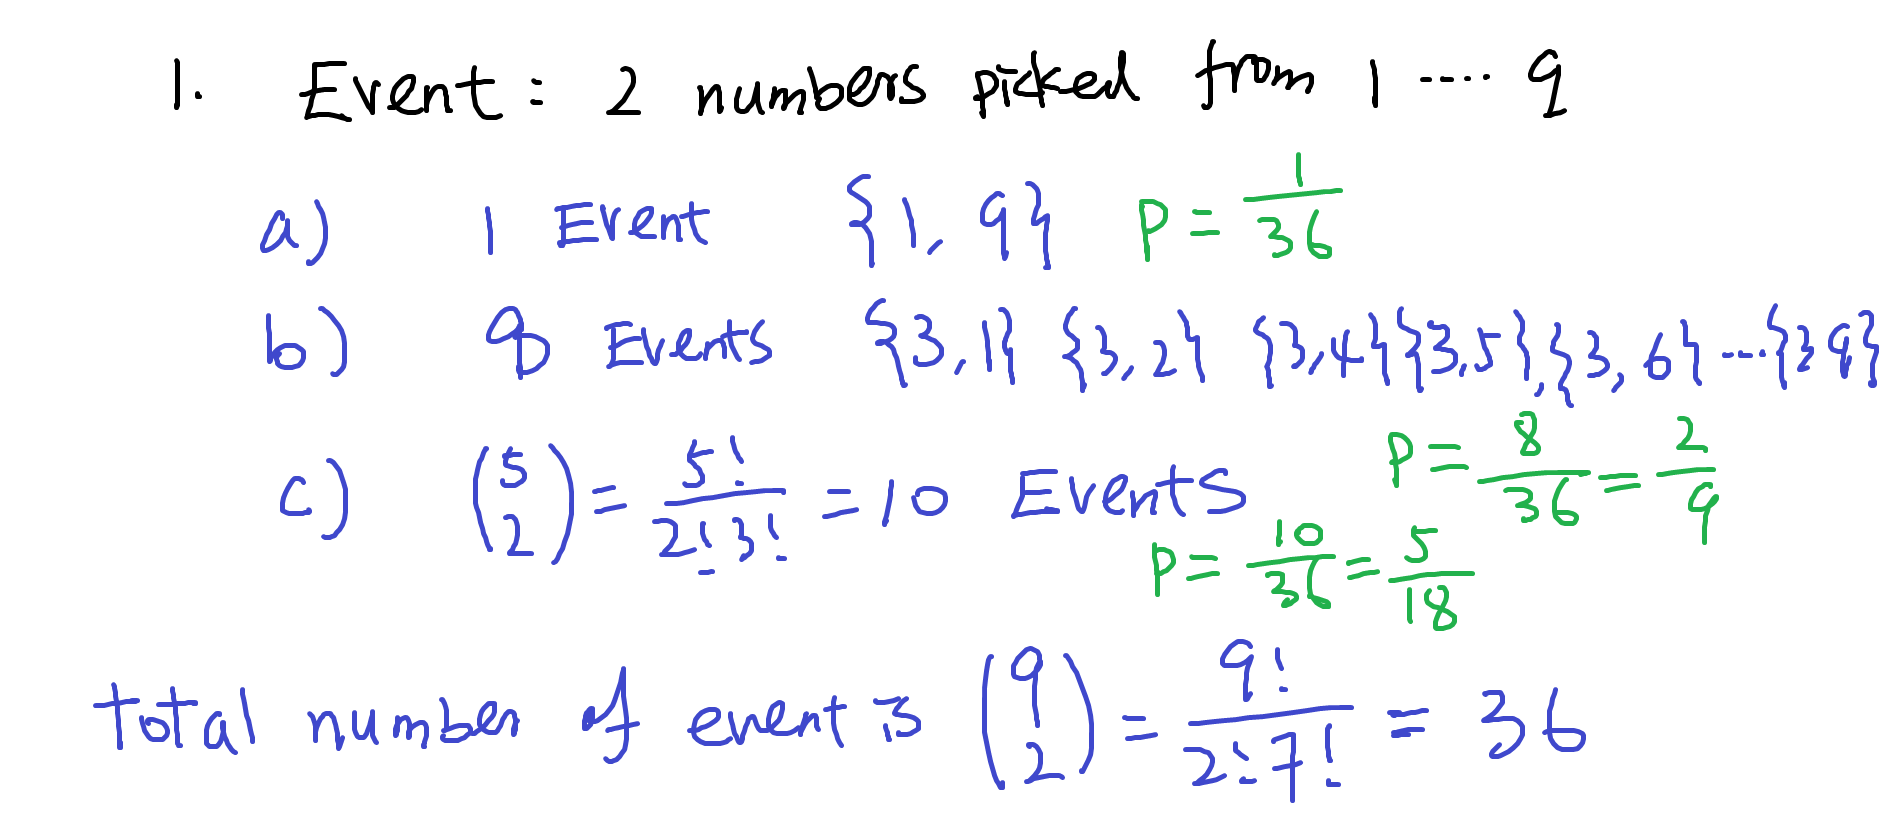 1. Event : 2 numbers picked from 1 .... 9
a) 1 Event {1, 9} P = 1/36
b) 8 Events {3,1} {3,2} {3,4}{3,5},{3,6}....{3 9}
P = 8/36 = 2/9
c) (5 2) = 5!/2!3! = 10 Events
P = 10/36 = 5/18
total number of event is (9 2) = 9!/2!7! = 36